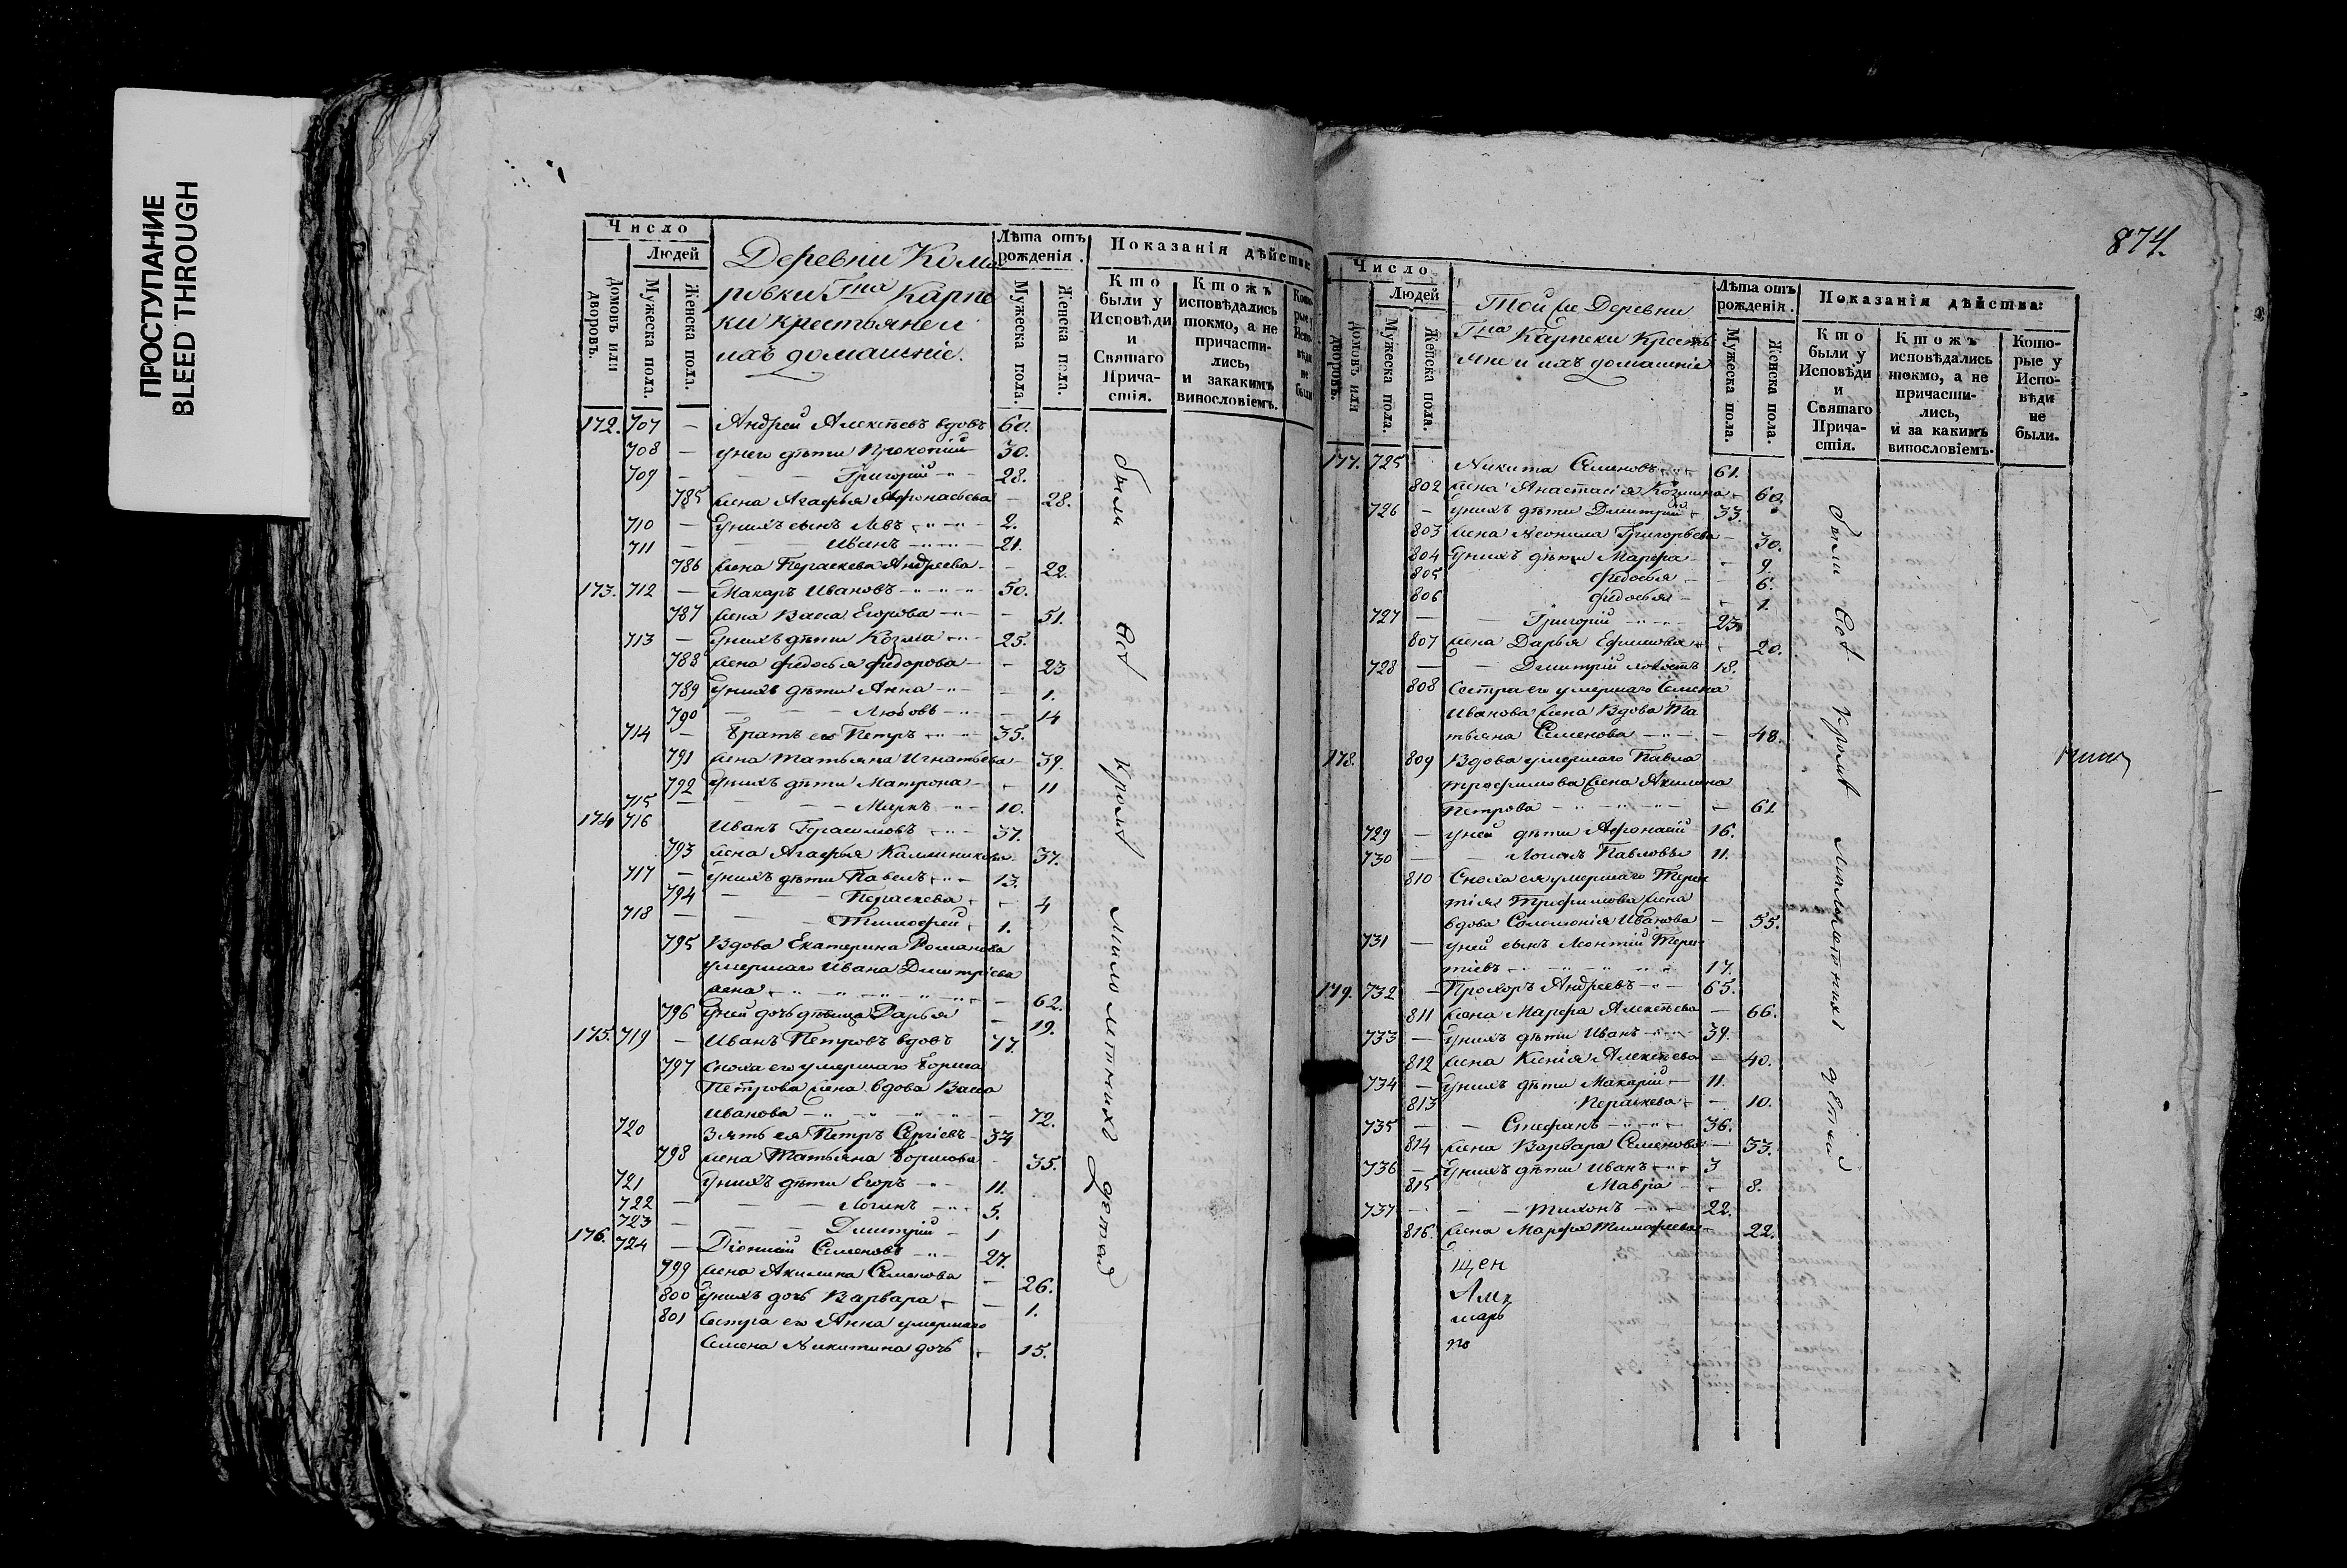 ПРОСТУПАНИЕ
BLEED THROUGH
Число
Людей
Домовъ или дворовъ.
Мужеска пола.
Женска пола.
Деревни Кома
ровки Гна Карпе
ки крестьяне и
ихъ домашніе.
Лѣта отъ рожденія.
Мужеска пола.
Женска пола.
Показанія дѣйства:
Кто были у Исповѣди и Святаго Причастія.
Ктожъ исповѣдались токмо, а не причастились, и закакимъ винословіемъ.
172. 707 — Андрей Алексѣевъ вдовъ 60.
708 — у него дѣти Прокопій 30.
709 — — — Григорій 28.
785 жена Агафья Афонасьева — 28.
710 — у нихъ сынъ Левъ 2.
711 — — — Иванъ 21.
786 жена Пераскева Андреева — 22.
173. 712 — Макаръ Ивановъ 50.
787 жена Васса Егорова — 51.
713 — у нихъ дѣти Козма 25.
788 жена Федосья Федорова — 23
789 у нихъ дѣти Анна — 1.
790 — — — Любовь — 14
714 — братъ его Петръ 35.
791 жена Татьяна Игнатьева — 39.
792 у нихъ дѣти Матрона — 11
715 — — — Маркъ 10.
174 716 Иванъ Герасимовъ 37.
793 жена Агафья Калиникова 37.
717 — у нихъ дѣти Павелъ 13.
794 — — — Пераскева — 4
718 — — — Тимофей 1.
795 Вдова Екатерина Романова
умершаго Ивана Дмитріева
жена — 62.
796 у ней дочь дѣвица Дарья — 19.
175. 719 — Иванъ Петровъ вдовъ 77.
797 сноха его умершаго
Петрова жена вдова Васса
Иванова — 72.
720 Зять ея Петръ Сергіевъ 37
798 жена Татьяна — 35.
721 у нихъ дѣти Егоръ 11.
722 — — — Логинъ 5.
723 — — — Дмитрій 1
176. 724 — Діонисій Семеновъ 27.
799 жена Акилина Семенова — 26.
800 у нихъ дочь Варвара — 1.
801 Сестра его Анна умершаго
Семена Никитина дочь — 15.
были всѣ кромѣ малолѣтнихъ дѣтей
874.
Число
Людей
Домовъ или дворовъ.
Мужеска пола.
Женска пола.
Той же Деревни
Гна Карпеки Кресть
яне и ихъ домашніе
Лѣта отъ рожденія.
Мужеска пола.
Женска пола.
Показанія дѣйства:
Кто были у Исповѣди и Святаго Причастія.
Ктожъ исповѣдались токмо, а не причастились, и за какимъ винословіемъ.
Которые у Исповѣди не были.
177. 725 Никита Семеновъ 61.
802 жена Анастасія Козмина 60.
726 — у нихъ дѣти Дмитрій 33.
803 жена Неонила Григорьева — 30.
804 у нихъ дѣти Марфа — 9.
805 Федосья — 6.
806 Федосья — 1.
727 — — Григорій 23
807 жена Дарья Ефимова — 20.
728 — — Дмитрій холостъ 18.
808 Сестра его умершаго Семена
Иванова жена Вдова Та
тьяна Семенова — 48.
178. 809 Вдова умершаго Павла
Трофимова жена Акилина
Петрова — 61
729 — у ней дѣти Афонасій 16.
730 — — Логинъ Павловы 11.
810 Сноха ея умершаго Терен
тія Трофимова жена
вдова Соломонія Иванова — 55.
731 — у ней сынъ Леонтій Терен
тіевъ 17.
179. 732 — Прохоръ Андреевъ 65.
811 жена Марфа Алексѣева — 66.
733 — у нихъ дѣти Иванъ 39.
812 жена Ксенія Алексѣева — 40.
734 — у нихъ дѣти Макарій 11.
813 Пераскева — 10.
735 — — Стефанъ 36.
814 жена Варвара Семенова — 33.
736 — у нихъ дѣти Иванъ 3
815 Мавра — 8.
737 — — Тихонъ 22.
816. жена Марфа Тимофеева — 22.
щен
были всѣ кромѣ малолѣтнихъ дѣтей